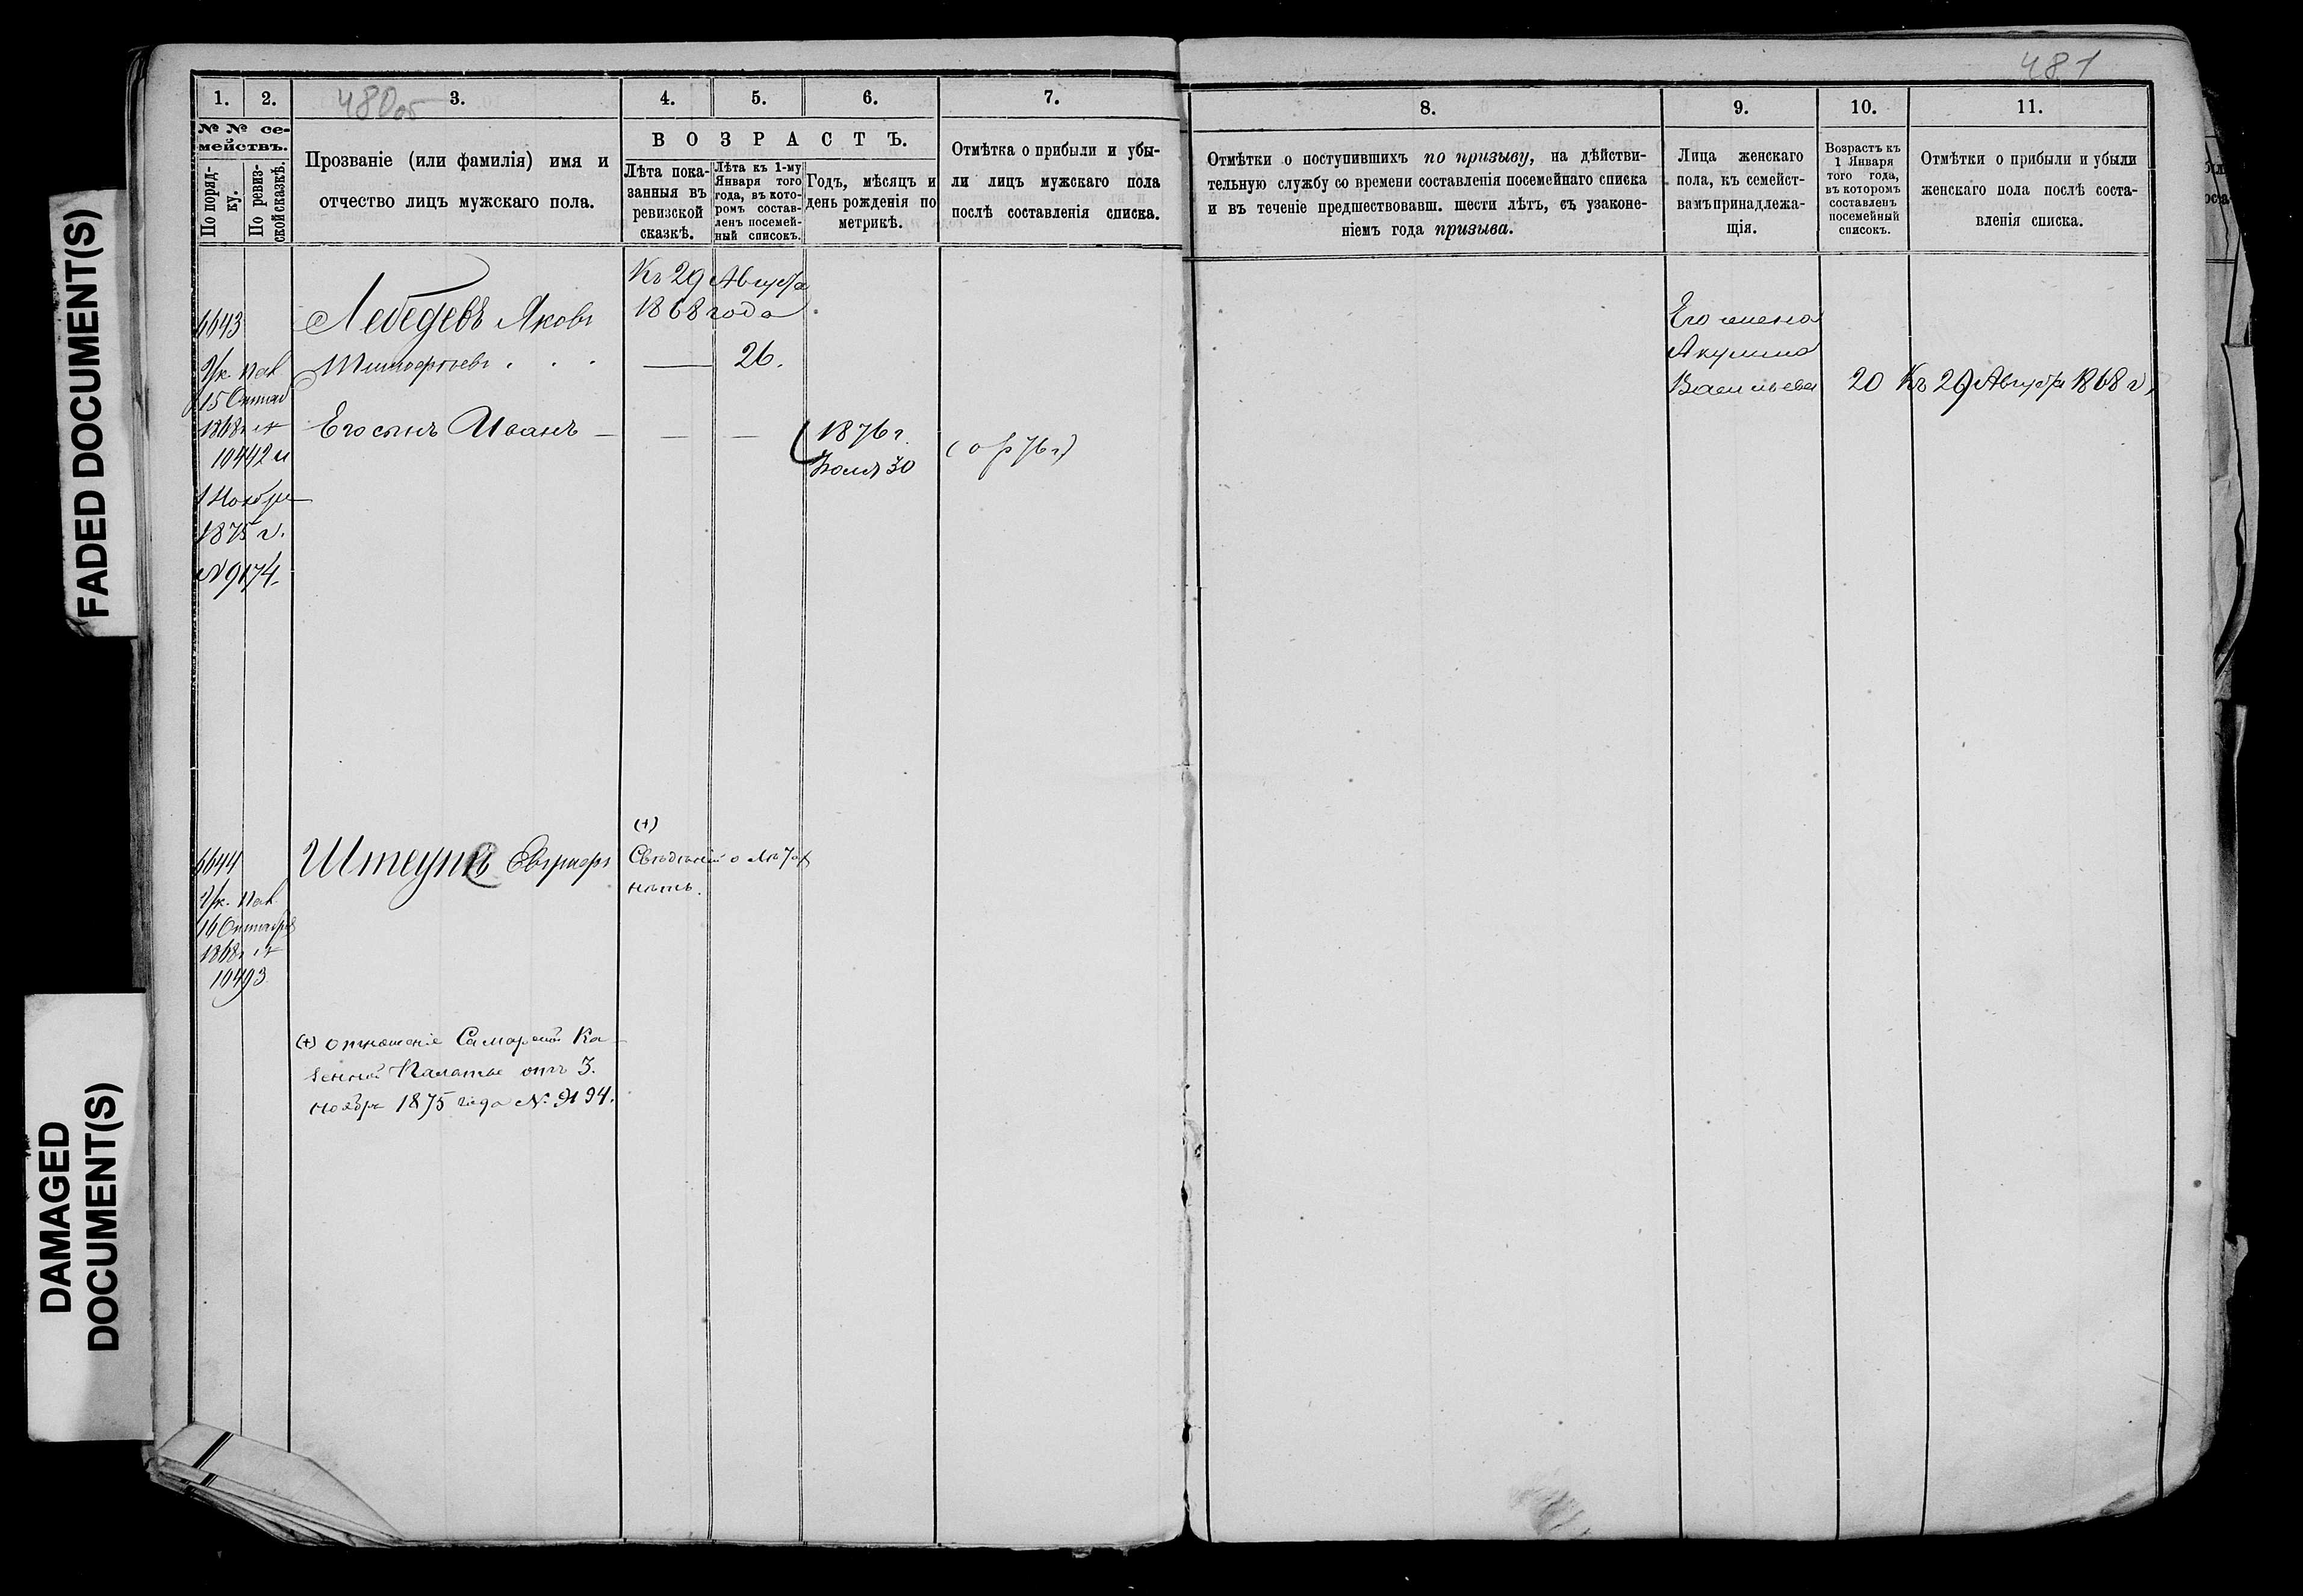 FADED DOCUMENT(S)
DAMAGED
DOCUMENT(S)
480об
1. 2. 3. 4. 5. 6. 7.
№ № се-
мействъ.
По поряд-
ку.
По ревиз-
ской сказкѣ.
Прозваніе (или фамилія) имя и
отчество лицъ мужскаго пола.
ВОЗРАСТЪ.
Лѣта пока-
занныя въ
ревизской
сказкѣ.
Лѣта къ 1-му
Января того
года, въ кото-
ромъ состав-
ленъ посемей-
ный списокъ.
Годъ, мѣсяцъ и
день рожденія по
метрикѣ.
Отмѣтка о прибыли и убы-
ли лицъ мужскаго пола
послѣ составленія списка.
Къ 29 Августа
1868 года
6643
Лебедевъ Яковъ
Тимофѣевъ 26.
Ук. Пал
15 Октяб
1868 г №
10442 и
1 Ноября
1875 г.
№ 9174.
Его сынъ Иванъ — — —
1876 г.
Іюля 30
6644
Штеупъ
(+)
Свѣдѣній о лѣтах
нѣтъ.
Ук. Пал.
16 Октября
1868 г №
10493
(+) отношеніе Самарской Ка-
зенной Палаты отъ 3.
ноября 1875 года №. 9194.
481
8. 9. 10. 11.
Отмѣтки о поступившихъ по призыву, на дѣйстви-
тельную службу со времени составленія посемейнаго списка
и въ теченіе предшествовавш. шести лѣтъ, съ узаконе-
ніемъ года призыва.
Лица женскаго
пола, къ семейст-
вамъ принадлежа-
щія.
Возрастъ къ
1 Января
того года,
въ которомъ
составленъ
посемейный
списокъ.
Отмѣтки о прибыли и убыли
женскаго пола послѣ соста-
вленія списка.
Его жена
Акулина
Васильева 20 Къ 29 Августа 1868 г.